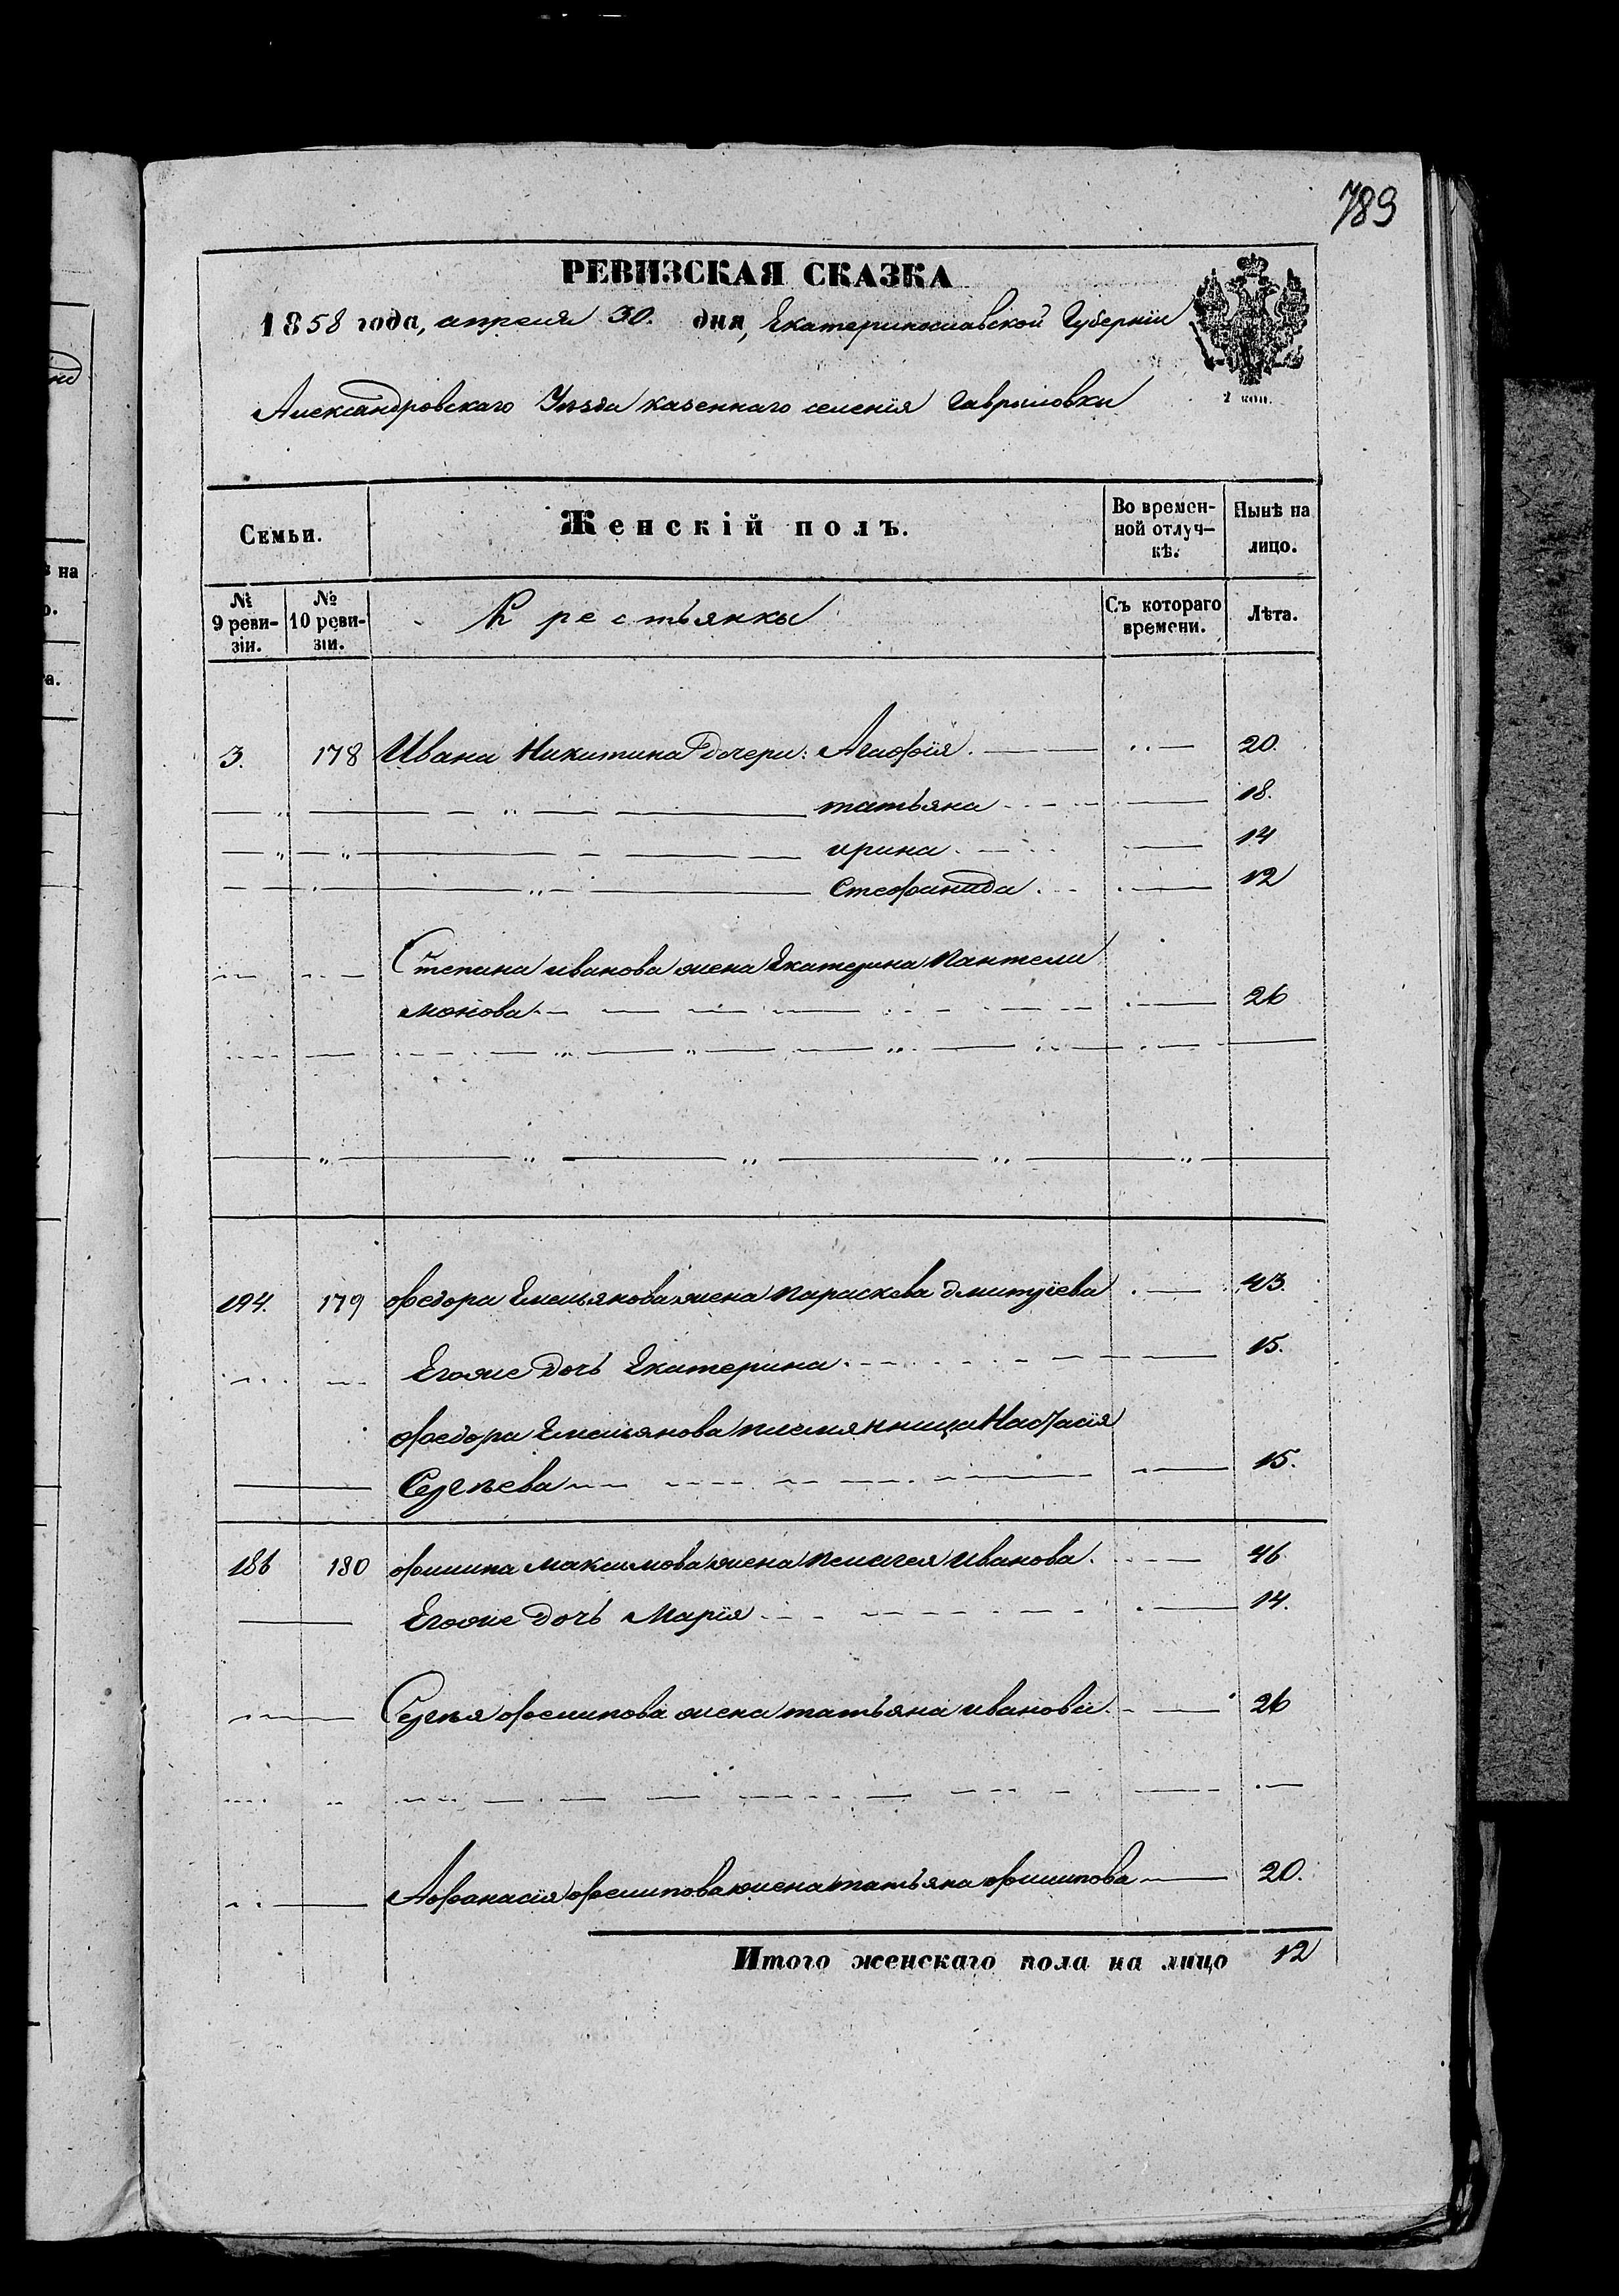 789
РЕВИЗСКАЯ СКАЗКА
1858 года, апреля 30. дня, Екатеринославской Губерніи
Александровскаго Уѣзда казеннаго селенія Гавриловки
2 коп.
Семьи. Женскій полъ. Во времен-ной отлуч-кѣ. Нынѣ на лицо.
№ 9 реви-зіи. № 10 реви-зіи. Крестьянки Съ котораго времени. Лѣта.
3. 178 Ивана Никитина дочери: Агафія. 20.
татьяна 18.
ирина 14
Стефанида 12
Степана иванова жена Екатерина Пантели
монова 26
194. 179 федора Емельянова жена параскева дмитріева 43.
Егоже дочь Екатерина. 15.
федора Емельянова племянница Настасія
Сергѣева 15.
186 180 филипа максимова жена пелагея иванова. 46
Егоже дочь Марія 14.
Сергѣя фелипова жена татьяна иванова 26
Афанасія фелипова жена татьяна филипова 20.
Итого женскаго пола на лицо 12